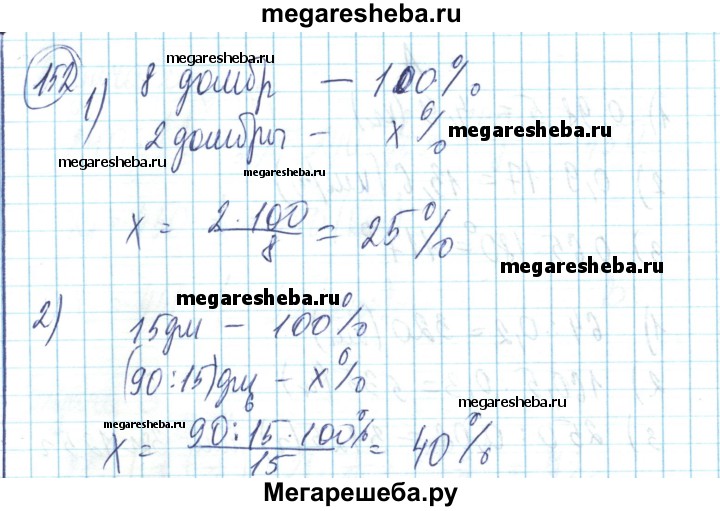 megaresheba.ru
152
1) 8 домбр — 100%
megaresheba.ru
2 домбры - x%
megaresheba.ru
megaresheba.ru
megaresheba.ru
x = 2·100/8 = 25%
megaresheba.ru
megaresheba.ru
2) 15дм - 100%
(90:15)дм - x%
megaresheba.ru
megaresheba.ru
x = 90:15·100%/15 = 40%
6
Мегарешеба.ру